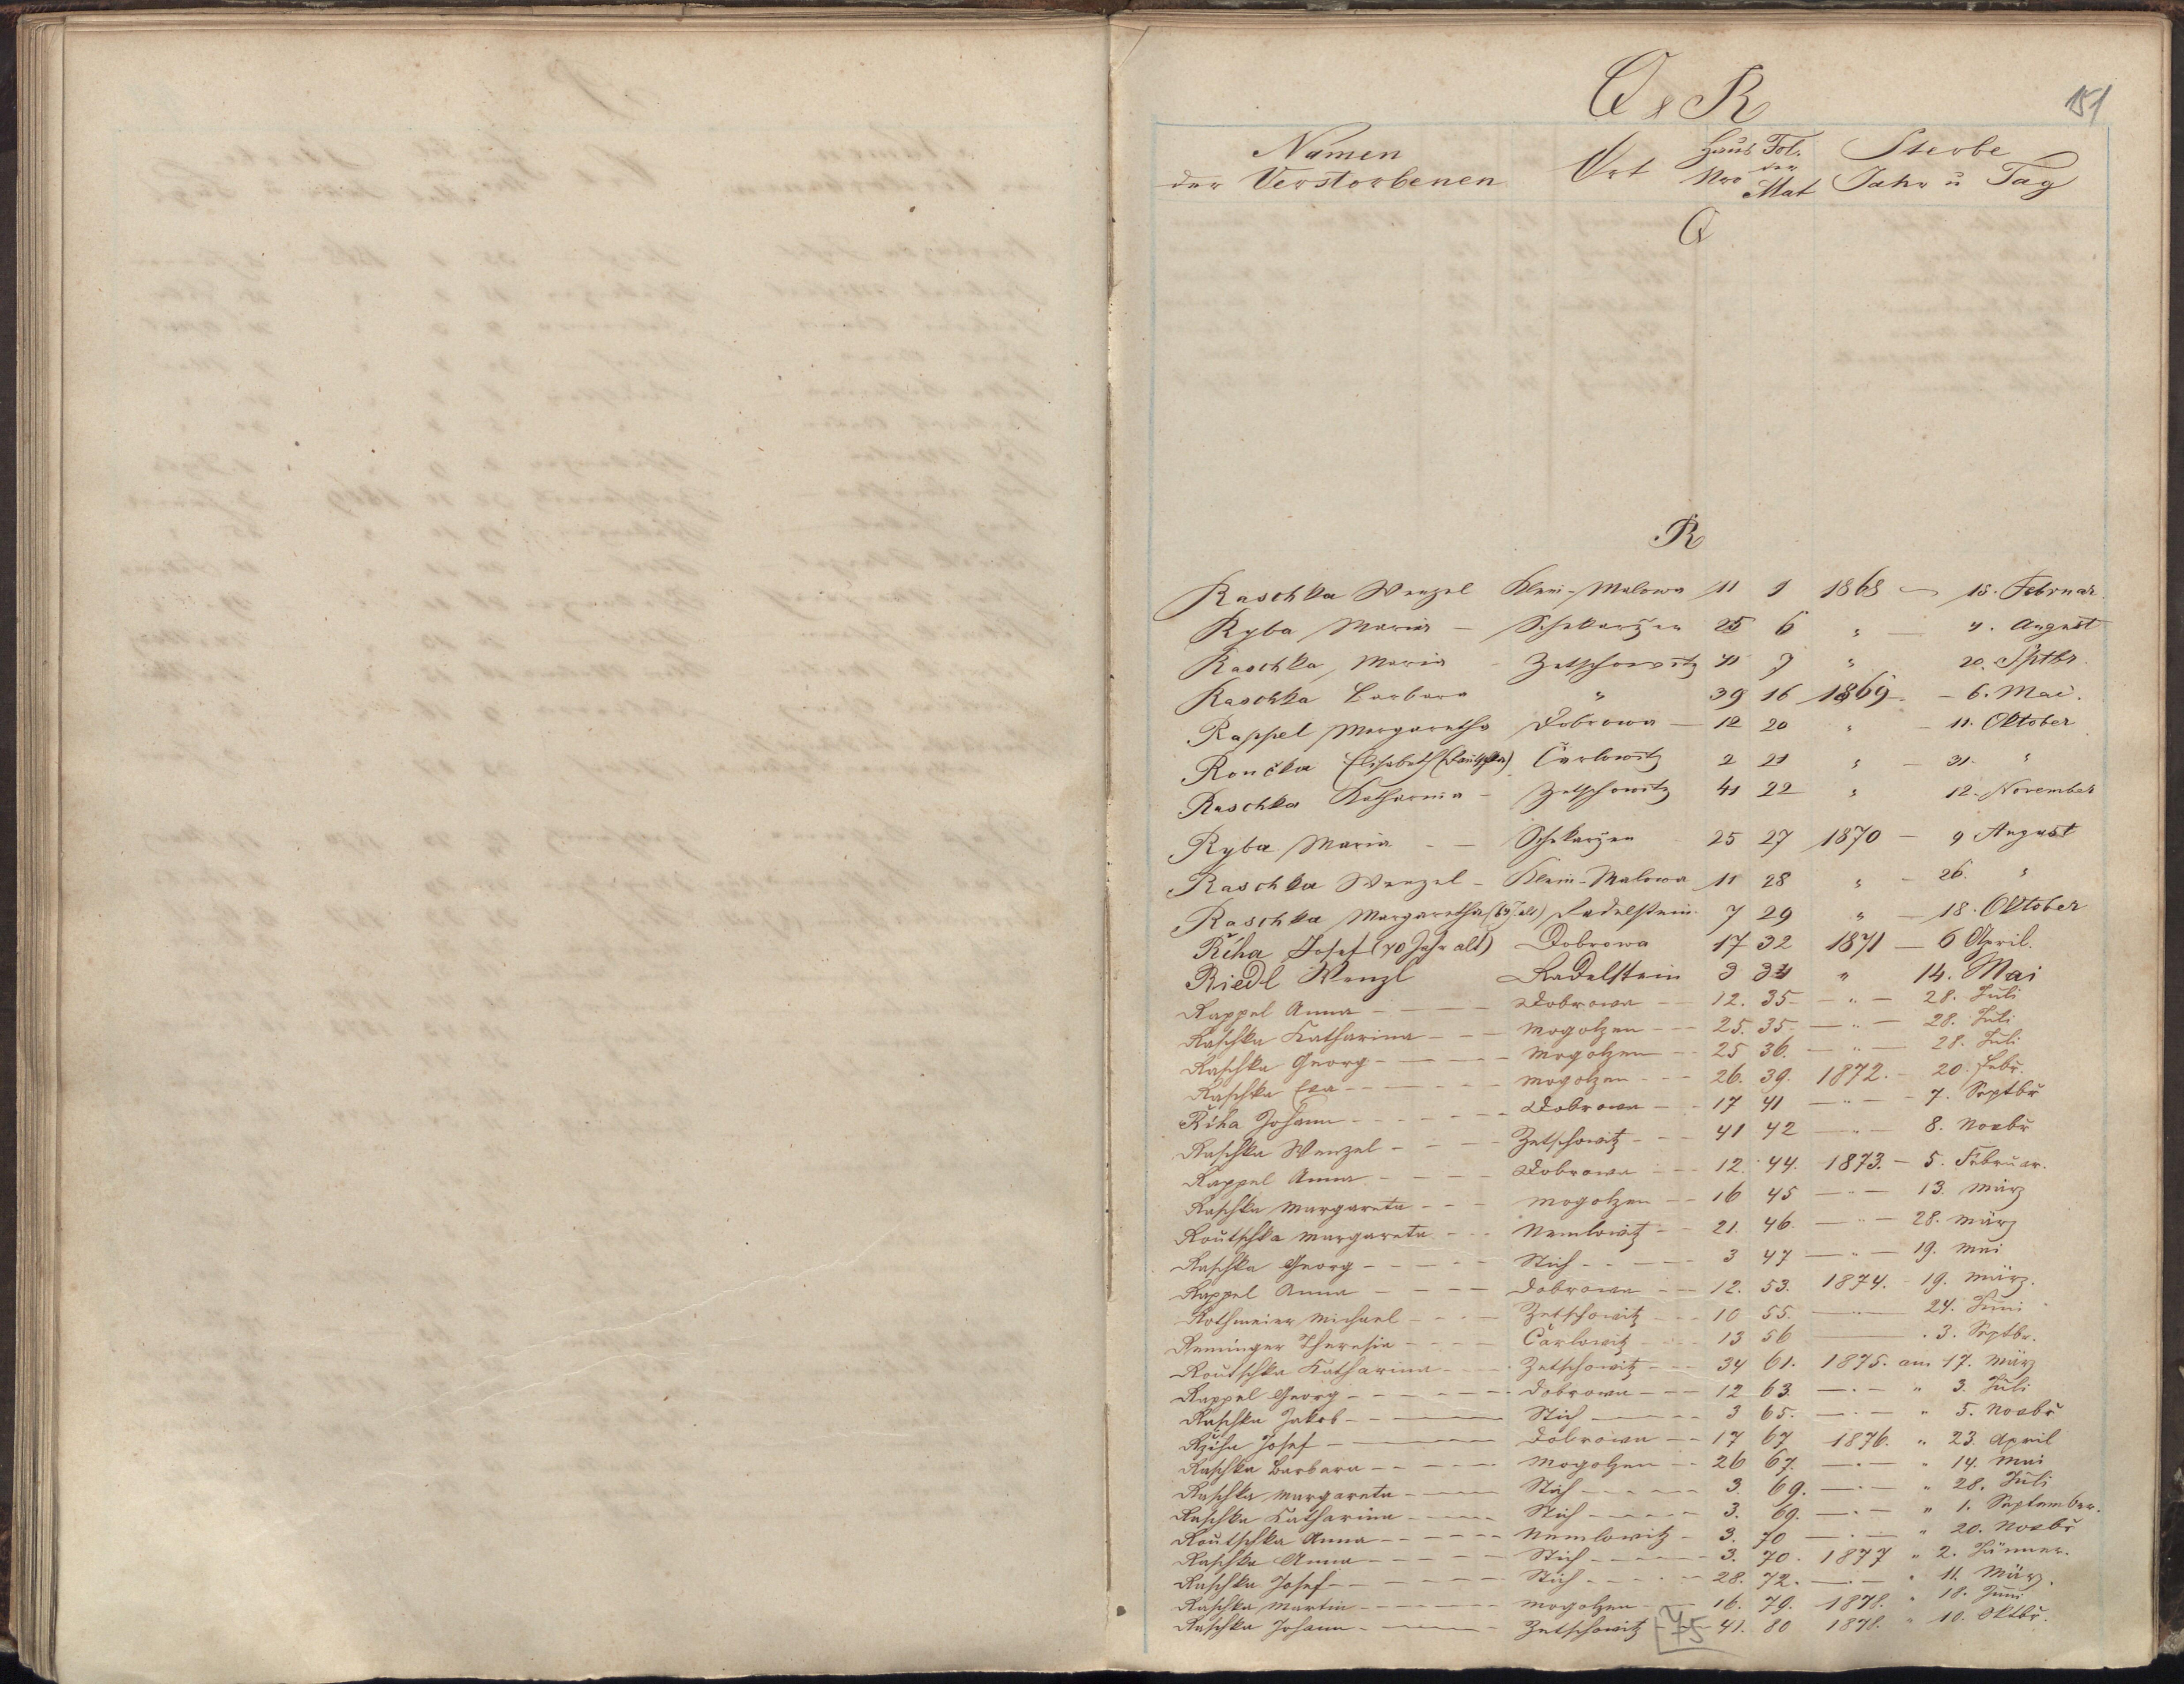 Q & R
151
Namen der Verstorbenen Ort Haus Nro Fol. der Mat Sterbe Jahr u Tag
Q
R
Raschka Wenzel Klein-Malowa 11 1 1868 — 15. Februar
Ryba Maria — Schekarzen 25 6 " — 4. August
Raschka Maria - Zetschowitz 41 7 " 20. Sptbr.
Raschka Barbara " 39 16 1869 - 6. Mai.
Rappel Margaretha Dobrowa — 12 20 " — 11. Oktober
Roučka Elisabeth Čarlowitz 2 21 " — 31. "
Raschka Katharina - Zetschowitz 41 22 " 12. November
Ryba Maria - - Schekarzen 25 27 1870 — 9 August
Raschka Wenzel - Klein-Malowa 11 28 " - 26. "
Raschka Margaretha (69 J. alt) Radelstein 7 29 " — 18. Oktober
Řiha Josef (70 Jahr alt) Dobrowa 17 32 1871 — 6 April.
Riedl Wenzl Radelstein 3 34 " 14. Mai
Rappel Anna - - - Dobrowa - - 12. 35 - " - 28. Juli
Raschka Katharina - - Mogolzen - - 25. 35 - " - 28. Juli
Raschka Georg - - - Mogolzen - - 25 36. - " - 28. Juli
Raschka Eva - - - Mogolzen - - 26. 39. 1872. - 20. Febr.
Řiha Johann - - - Dobrowa - - 17 41 - " - 7. Septbr
Raschka Wenzel - - - Zetschowitz - - 41 42 - " - 8. Novbr
Rappel Anna - - - Dobrowa - - 12. 44. 1873. - 5. Februar.
Raschka Margareta - - - Mogolzen - - 16 45 - " - 13. März
Routschka Margareta - - Nemlowitz - - 21. 46. - " - 28. März
Raschka Georg - - - Stich - - - 3 47 - " - 19. Mai
Rappel Anna - - - Dobrowa - - 12. 53. 1874. - 19. März.
Rothmeier Michael - - - Zetschowitz - - 10 55. - " - 24. Juni
Reminger Theresia - - - Čarlowitz - - 13 56 - 3. Septbr.
Routschka Katharina - - Zetschowitz - - 34 61. 1875. am 17. März
Rappel Georg - - - Dobrowa - - 12 63. - " - " 3. Juli
Raschka Jakob - - - Stich - - - 3 65. - " - " 5. Novbr
Ržiha Josef - - - Dobrowa - - 17 67 1876. " 23. April
Raschka Barbara - - - Mogolzen - - 26 67. - " - " 14. Mai
Raschka Margareta - - - Stich - - - 3. 69. - " - " 28. Juli
Raschka Katharina - - - Stich - - - 3. 69. - " - " 1. September.
Routschka Anna - - - Nemlowitz - 3. 70 - " - " 20. Novbr
Raschka Anna - - - Stich - - - 3. 70. 1877 " 2. Jänner.
Raschka Josef - - - Stich - - - 28. 72. - " - " 11. März.
Raschka Martin - - - Mogolzen - - 16. 79. 1878. " 18. Juni
Raschka Johann - - - Zetschowitz - - 41. 80 1878. " 10. Oktbr.
75